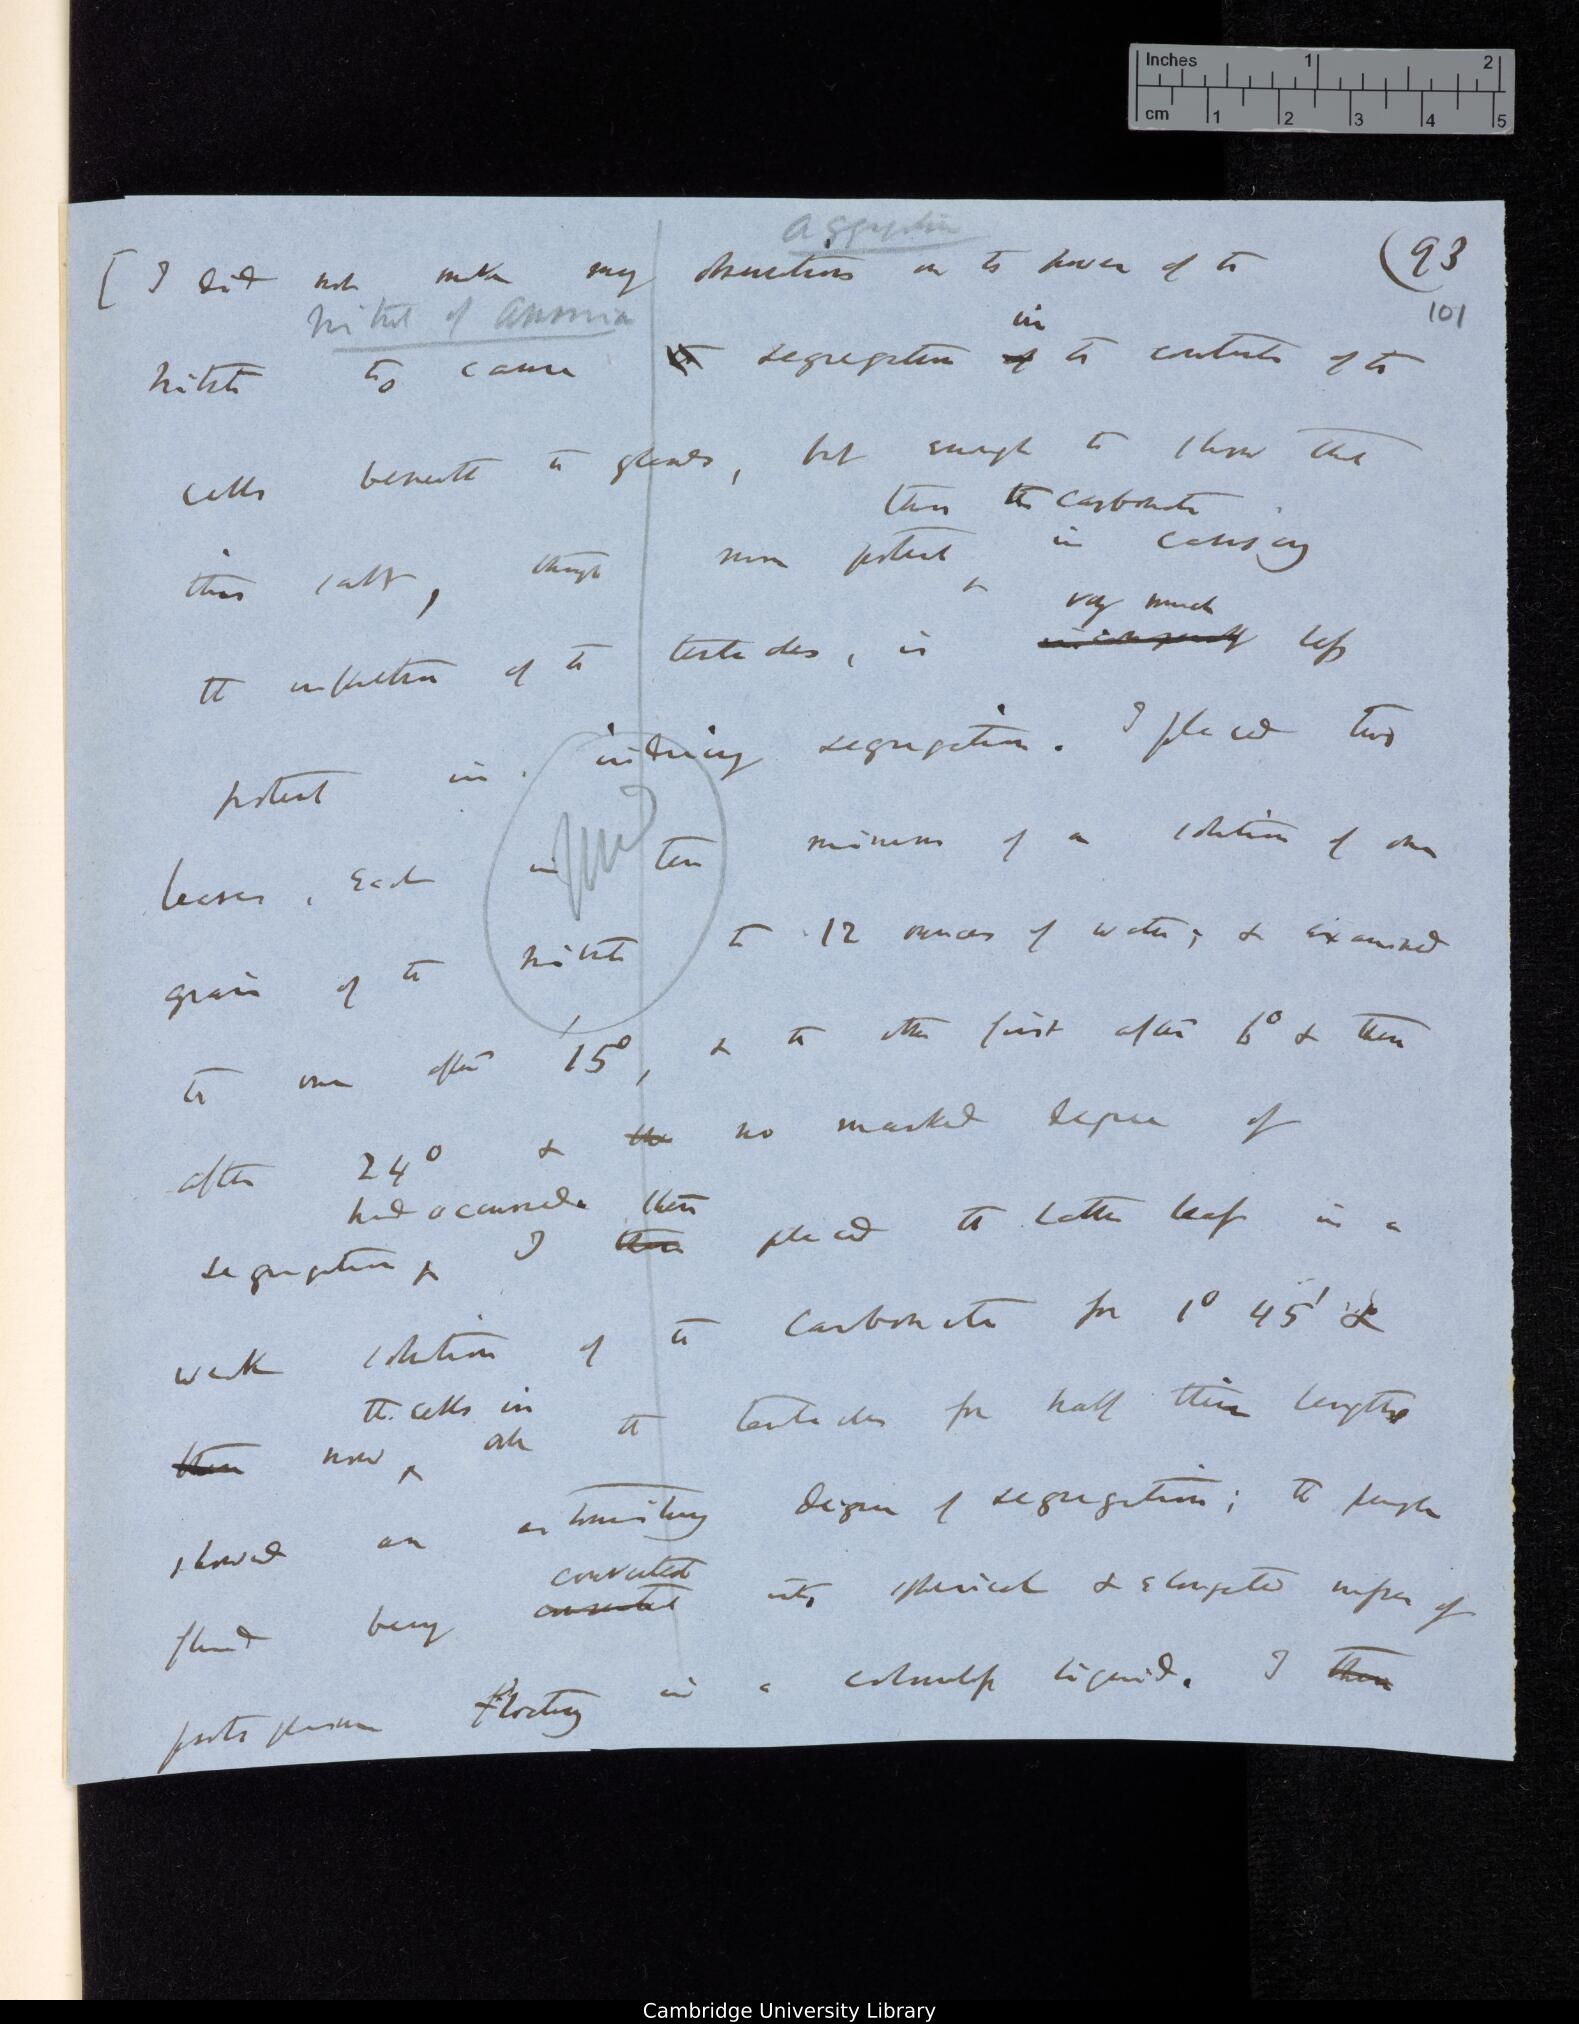 Inches 1 2
cm 1 2 3 4 5
Aggregation
(93
101
[ I did not make many observations on the power of the
Nitrate of Ammonia
in
nitrate to cause the segregation of the contents of the
cells beneath the glands, but enough to show that
than the carbonate
this salt, though more potent ^ in causing
very much
the inflection of the tentacles, is less
potent in inducing segregation. I placed two
leaves, each in ten minims of a solution of one
grain of the nitrate to 12 ounces of water; & examined
the one after 15°, & the other first after 6° & then
after 24° & the no marked degree of
had occurred. then
segregation ^ I then placed the latter leaf in a
weak solution of the carbonate for 1° 45' &
the cells in
then now ^ all the tentacles for half their lengths
showed an astonishing degree of segregation; the purple
converted
fluid being into spherical & elongated masses of
protoplasm floating in a colourless liquid. I then
Cambridge University Library